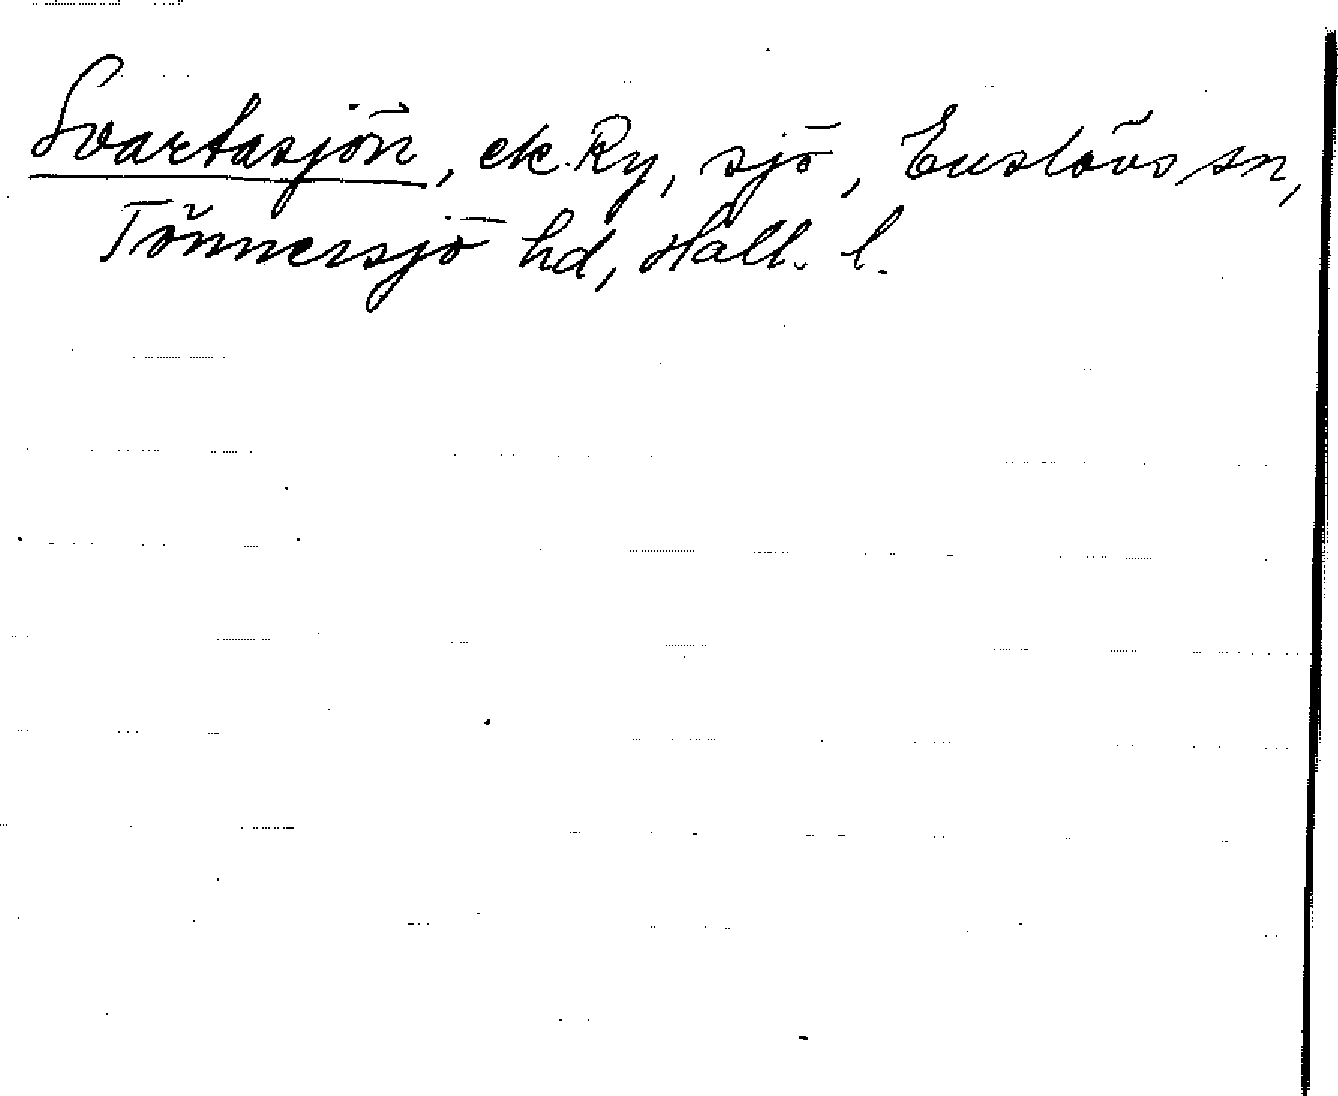 Svartasjön, ek. Ry, sjö, Enslövs sn,
Tönnersjö hd, Hall. l.